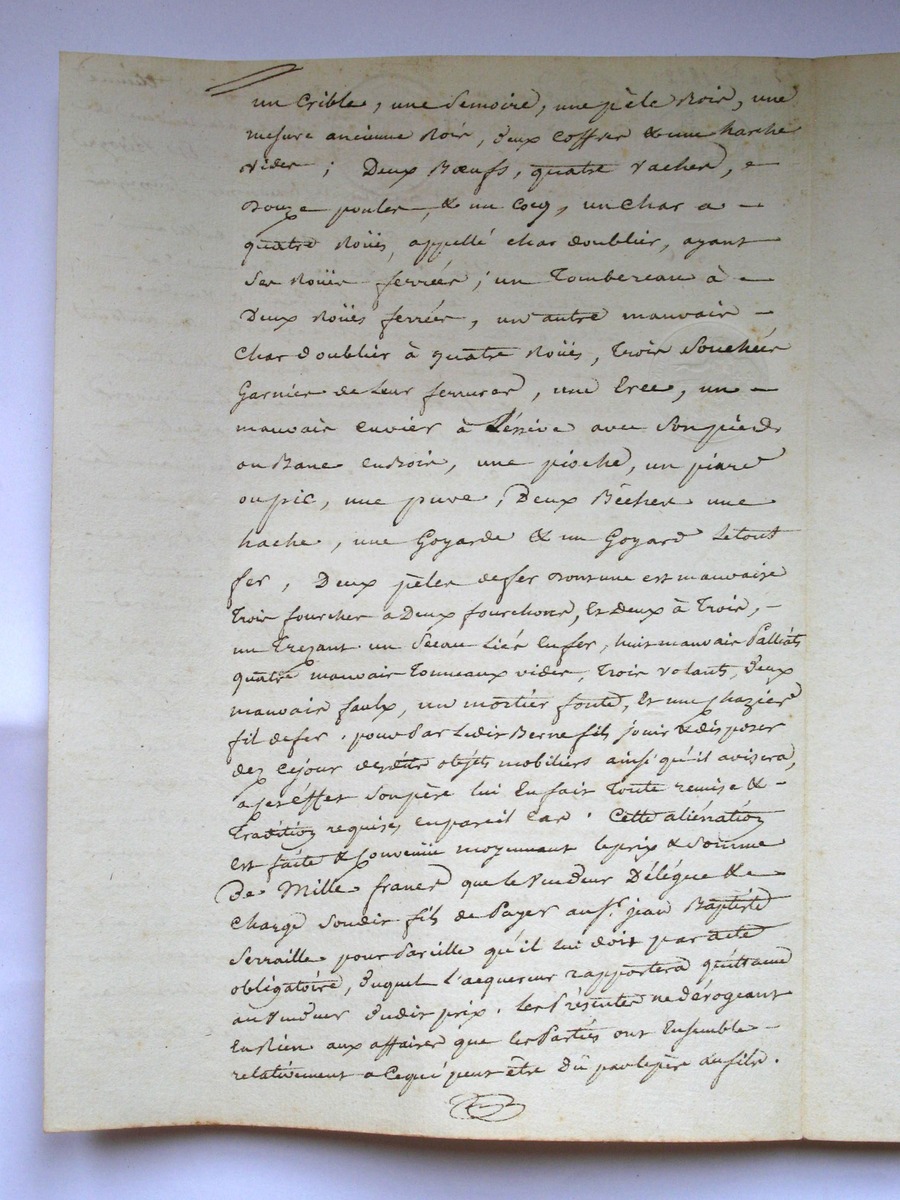 un Crible, une Semoire, une pèle Bois, une
mesure ancienne Bois, deux Coffres & une harche
vides ; Deux Bœufs, quatre vaches, 
Douze poules, & un Cocq, un Char a
quatre Roües, appellé char doublier, ayant
Ses Roües ferrées ; un Tombereau à
Deux Roües ferrées, un autre mauvais
Char doublier à quatre Roües, Trois
Garnies de Leur ferrures, une un
mauvais Cuvier à Léssive avec Son pièd
ou Banc en Bois, une pioche, un piard
ou pic, une Deux Bêches une
hache, une Goyarde & un Goyard Le tout
fer, Deux pèles de fer Dont une est mauvaise
Trois fourches a Deux fourchons, Et Deux à Trois,
un Trezant un Séeau Liés En fer, huit mauvais
quatre mauvais Tonneaux vides, Trois volants, deux
mauvais faulx, un mortier fonte, Et une
fil de fer. pour Par Ledit Berne fils jouir & disposer
dez Cejour desdits objets mobiliers ainsi qu'il avisera,
a ces Effet Son père lui En fait Toute remise &
Tradition requises en pareil Cas. Cette aliénation
Est faite & Convenüe moyennant le prix & Somme
De Mille francs que le Vendeur Délégue &
Charge Sondit fils de Payer au S.r jean Baptiste
Serraille pour Pareille qu'il lui doit par acte
obligatoire, duquel l'acquereur rapportera quittance
au Vendeur dudit prix. Les Présentes ne Dérogeant
En Rien aux affaires que les Parties ont Ensemble
relativement a Ce qui peut être Dû par le père au fils.